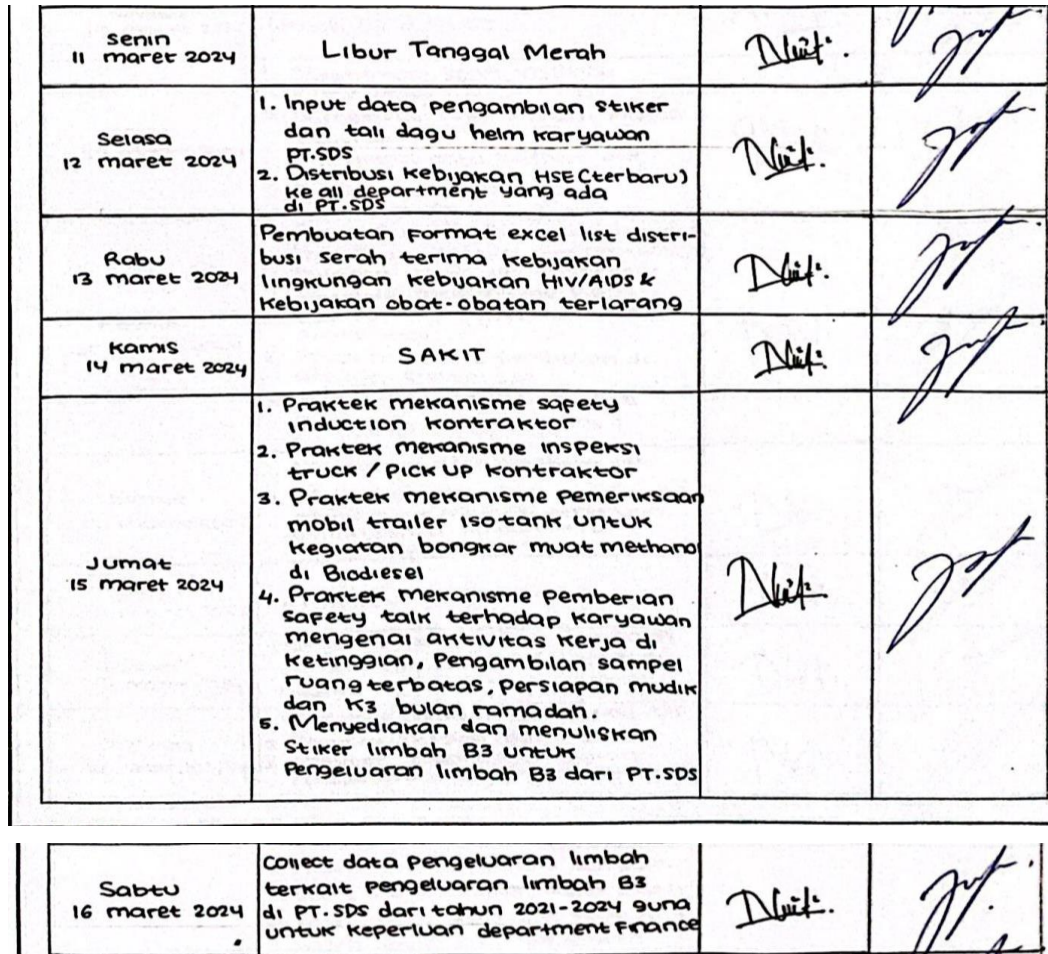 Senin
11 maret 2024
Libur Tanggal Merah
Selasa
12 maret 2024
1. Input data pengambilan stiker
dan tali dagu helm karyawan
PT.SDS
2. Distribusi Kebijakan HSE (terbaru)
ke all department yang ada
di PT.SDS
Rabu
13 maret 2024
Pembuatan format excel list distri-
busi serah terima kebijakan
lingkungan kebijakan HIV/AIDS &
kebijakan obat-obatan terlarang
Kamis
14 maret 2024
SAKIT
Jumat
15 maret 2024
1. Praktek mekanisme safety
induction kontraktor
2. Praktek mekanisme inspeksi
truck / Pick Up kontraktor
3. Praktek mekanisme pemeriksaan
mobil trailer isotank untuk
kegiatan bongkar muat methanol
di Biodiesel
4. Praktek mekanisme Pemberian
safety talk terhadap karyawan
mengenai aktivitas kerja di
ketinggian, Pengambilan sampel
ruang terbatas, persiapan mudik
dan K3 bulan ramadah.
5. Menyediakan dan menuliskan
Stiker limbah B3 untuk
Pengeluaran limbah B3 dari PT.SDS
Sabtu
16 maret 2024
Collect data pengeluaran limbah
terkait pengeluaran limbah B3
di PT.SDS dari tahun 2021-2024 guna
untuk keperluan department Finance